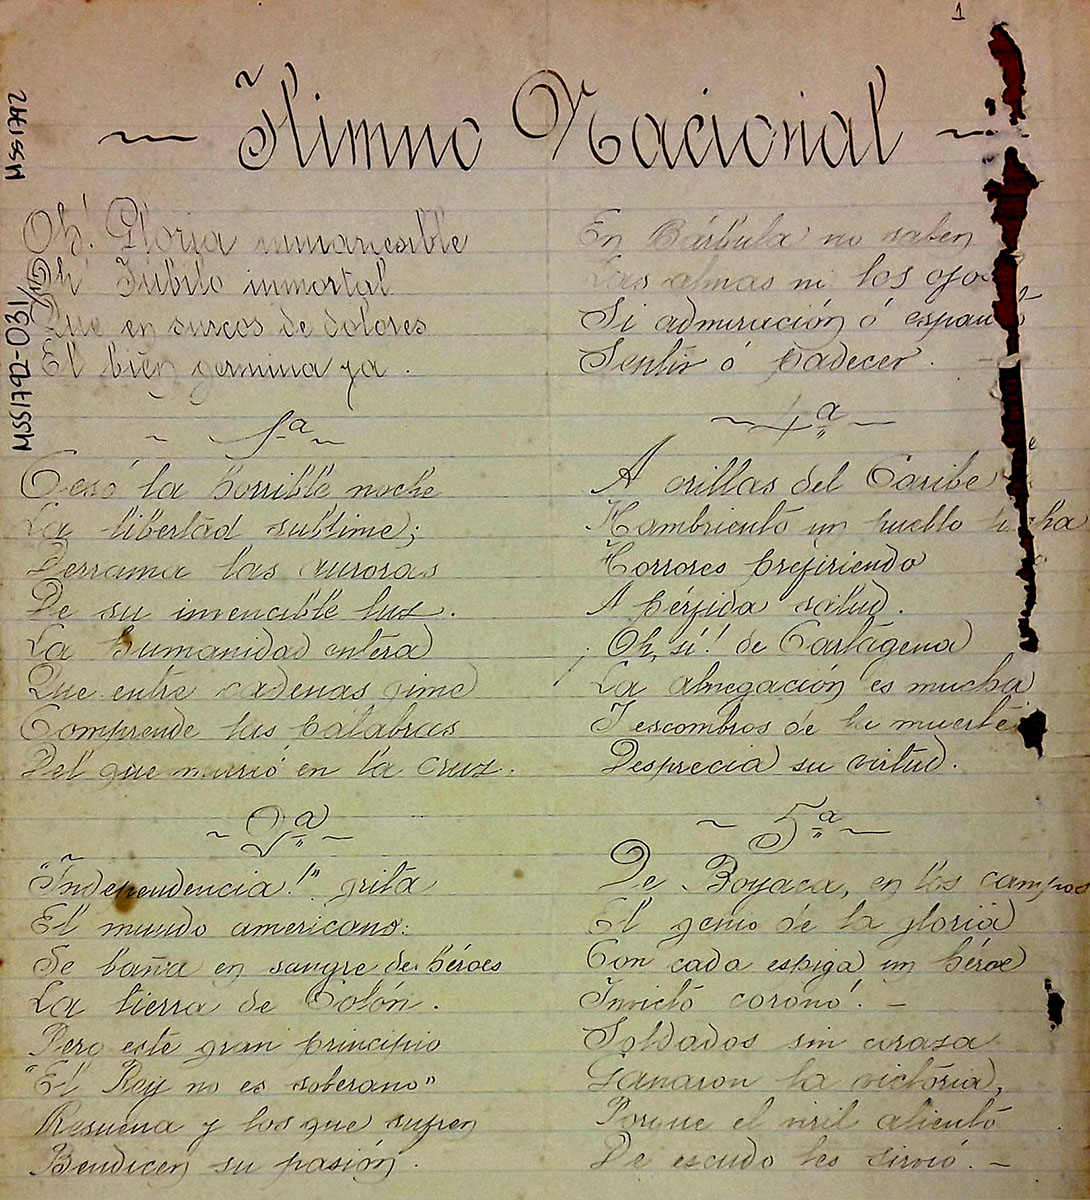 1
MSS1742
MSS1792-031
~ Himno Nacional ~
Oh! Gloria inmarcesible
Oh! Jubilo inmortal
Que en surcos de dolores
El bien germina ya.
~ 1ª ~
Cesó la horrible noche
La libertad sublime;
Derrama las auroras
De su invencible luz.
La humanidad entera
Que entre cadenas gime
Comprende las palabras
Del que murió en la cruz.
~ 2ª ~
"Independencia!" grita
El mundo americano:
Se baña en sangre de héroes
La tierra de Colón.
Pero este gran principio
"El Rey no es soberano"
Resuena y los que sufren
Bendicen su pasión.
En Bárbula no saben
Las almas ni los ojos
Si admiración ó espanto
Sentir ó padecer.
~ 4ª ~
A orillas del Caribe
Hambriento un pueblo lucha
Horrores prefiriendo
A pérfida salud.
Oh, sí! de Cartagena
La abnegación es mucha
I escombros de la muerte
Desprecia su virtud.
~ 5ª ~
De Boyaca, en los campos
El genio de la gloria
Con cada espiga un héroe
Invicto coronó. –
Soldados sin coraza
Ganaron la victoria,
Porque el viril aliento
De escudo les sirvió. –